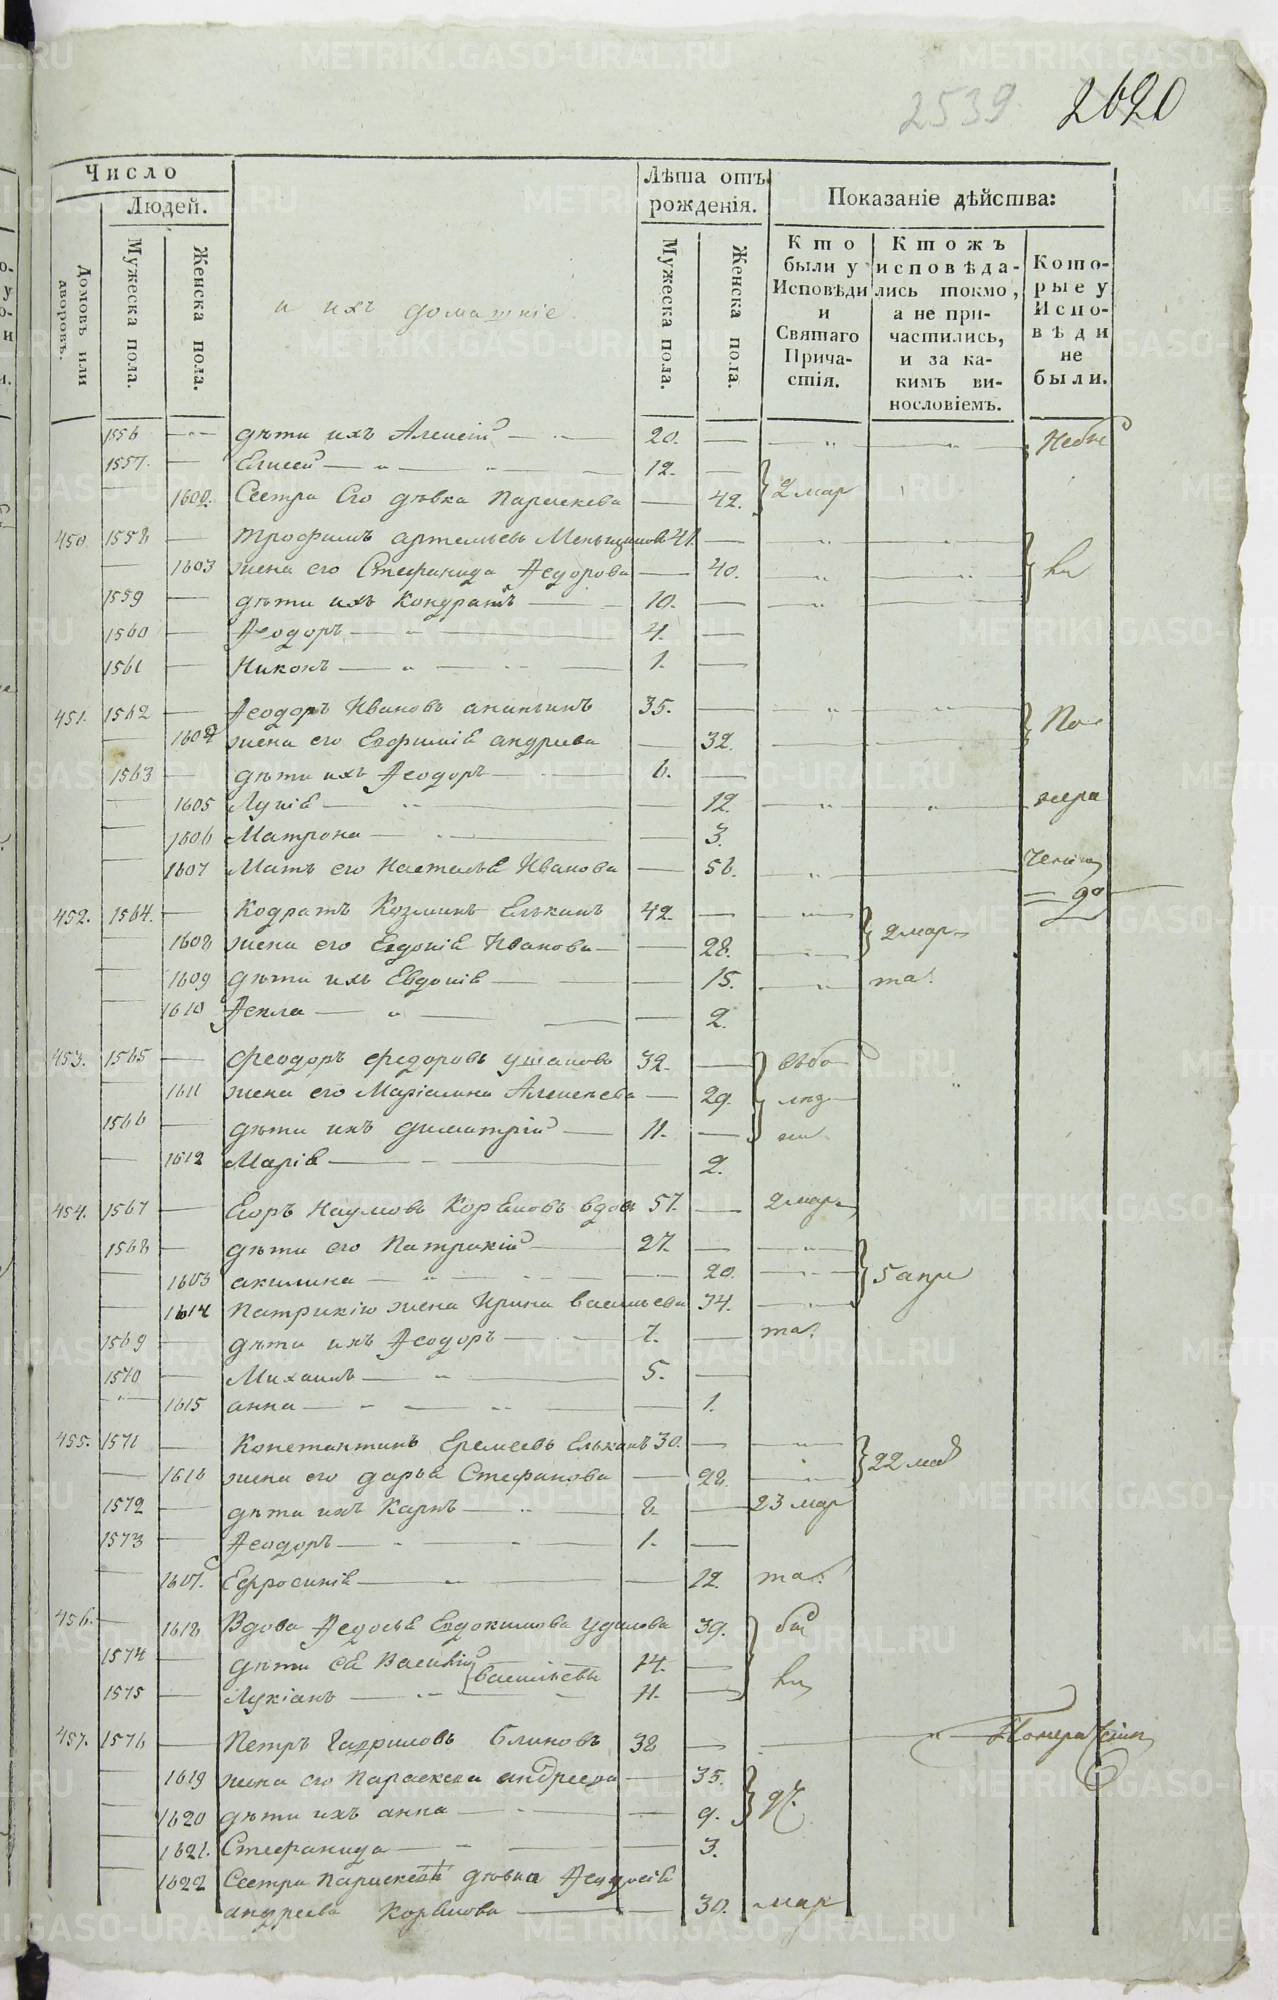 2539 2620
Число
Людей.
Домовъ или дворовъ.
Мужеска пола.
Женска пола.
и ихъ домашніе
Лѣта отъ рожденія.
Мужеска пола.
Женска пола.
Показаніе дѣйства:
Кто были у Исповѣди и Святаго Причастія.
Ктожъ исповѣдались токмо, а не причастились, и за какимъ винословіемъ.
Которые у Исповѣди не были.
1556 дѣти ихъ Алексій 20. Небы
1557. Елисей 12.
1602. Сестра Его дѣвка Параскева 42. 2 мар
450. 1558 Трофимъ артемьевъ Меньщиковъ 41.
1603 жена его Стефанида Ѳедорова 40.
1559 дѣти ихъ Кондратъ 10.
1560 Ѳеодоръ 4.
1561 Никонъ 1.
451. 1562 Ѳеодоръ Ивановъ ананьинъ 35. По
1604 жена его Евфимія андреева 32.
1563 дѣти ихъ Ѳеодоръ 6.
1605 Лукія 12. нера
1606 Матрона 3.
1607 Мать его Настасья Иванова 56.
452. 1564. Кодратъ Козминъ Елькинъ 42
1608 жена его Евдокія Иванова 28. 2 мар
1609 дѣти ихъ Евдокія 15. та.
1610 Ѳекла 2.
453. 1565 Феодоръ Федоровъ ушаковъ 32.
1611 жена его Маріамна Алексеева 29.
1566 дѣти ихъ димитрій 11.
1612 Марія 2.
454. 1567 Егоръ Наумовъ Коряковъ вдов 57. 2 мар
1568 дѣти его Патрикій 27.
1603 акилина 20. 5 апр
1614 Патрикію жена Ирина васильева 34.
1569 дѣти ихъ Ѳеодоръ 7. та.
1570 Михаилъ 5.
1615 анна 1.
455. 1571 Константинъ Еремеевъ Елькинъ 30.
1616 жена его дарья Стефанова 28. 22 мая
1572 дѣти ихъ Карпъ 8. 23 мар
1573 Ѳеодоръ 1.
1607. Ефросинія 12. та.
456. 1618 Вдова Ѳедосья Евдокимова Удилова 39.
1574 дѣти ея Василій 14. Васильевы
1575 Лукіанъ 11.
457. 1576 Петръ Гавриловъ Блиновъ 38
1619 жена его Параскева андреева 35.
1620 дѣти ихъ анна 9.
1621. Стефанида 3.
1622 Сестра Параскевѣ дѣвка Ѳеодосія
андреева Корякова 30. мар